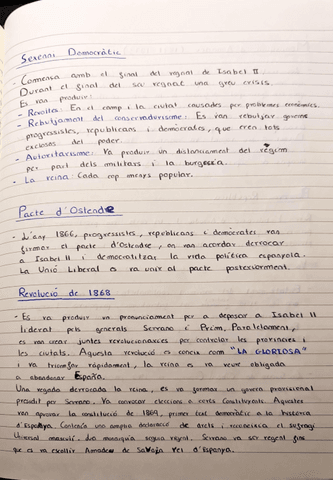 Sexenni Democràtic
- Comensa amb el final del regnat de Isabel II
Durant el final del seu regnat una greu crisis.
Es van produir:
- Revoltes: En el camp i la ciutat causades per problemes econòmics.
- Rebutjament del conservadurisme: Es van rebutjar governs
progressistes, republicans i demòcrates, que eren tots
exclosos del poder.
- Autoritarisme: Va produir un distanciament del règim
per part dels militars i la burgesia.
- La reina: Cada cop menys popular.
Pacte d'Ostende
- L'any 1866, progressistes, republicans i demòcrates van
firmar el pacte d'Ostende, on van acordar derrocar
a Isabel II i democratitzar la vida política espanyola.
La Unió Liberal es va unir al pacte posteriorment.
Revolució de 1868
- Es va produir un pronunciament per a deposar a Isabel II
liderat pels generals Serrano i Prim, Paral·lelament,
es van crear juntes revolucionaries per controlar les províncies i
les ciutats. Aquesta revolució es coneix com "LA GLORIOSA"
i va triomfar ràpidament, la reina es va veure obligada
a abandonar Espanya.
Una vegada derrocada la reina, es va formar un govern provisional
presidit per Serrano. Va convocar eleccions a corts Constituents. Aquestes
van aprovar la constitució de 1869, primer text democràtic a la història
d'Espanya. Contenia una amplia declaració de drets i reconeixia el sufragi
Universal masculí. monarquia seguia Serrano va ser regent fins
que es va escollir Amadeu de Savoia rei d'Espanya.